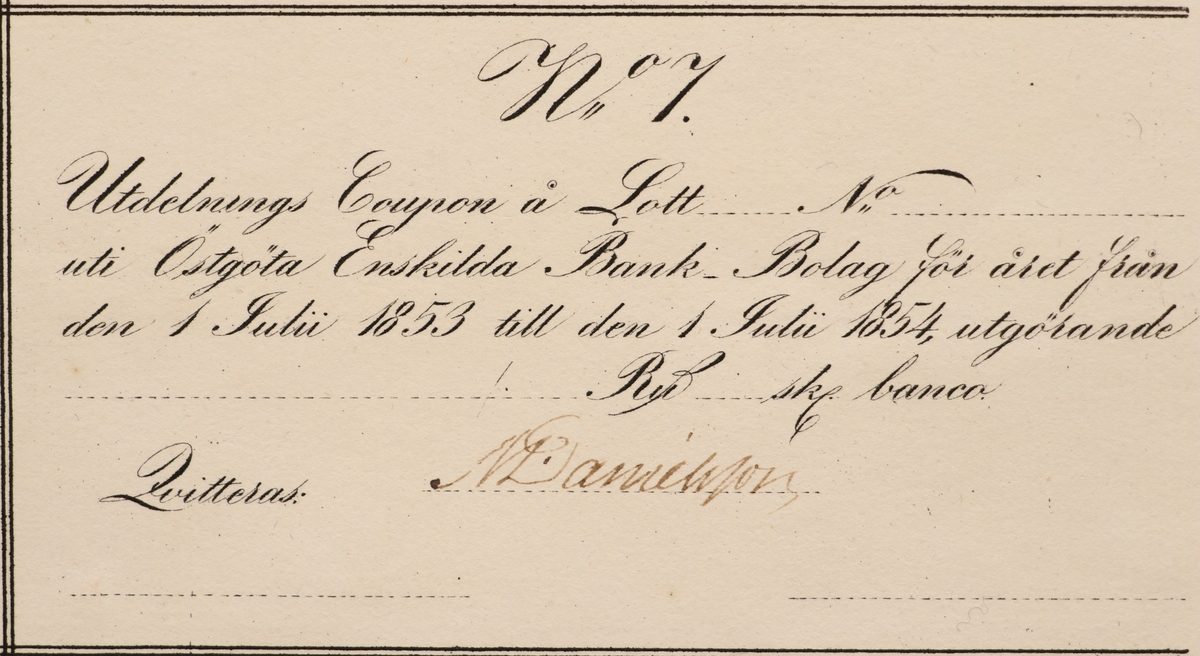 N:o 7.
Utdelnings Coupon å Lott N:o
uti Östgöta Enskilda Bank-Bolag för året från
den 1 Julii 1853 till den 1 Julii 1854, utgörande
sk. banco.
Qvitteras: Danielsson